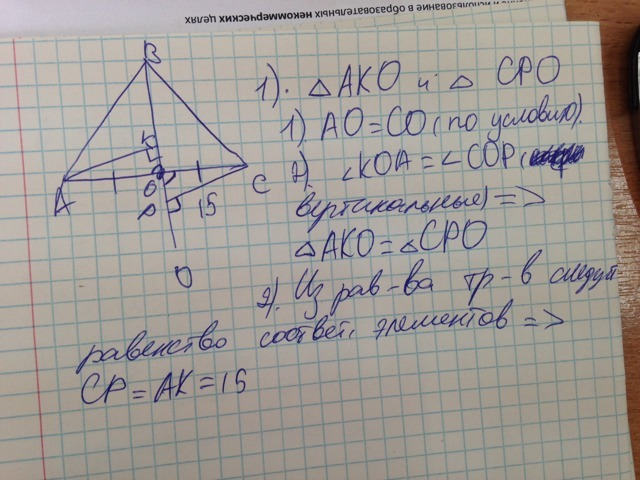 использование в образовательных некоммерческих целях
B
K
A
O
C
P
15
O
1). △ AKO и △ CPO
1) AO = CO (по условию).
2) ∠KOA = ∠COP (
вертикальные) =>
△AKO = △CPO
2). Из рав-ва тр-в следует
равенство соотвт. элементов =>
CP = AK = 15